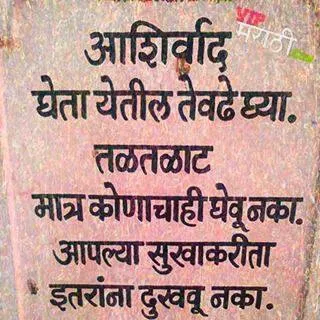 VIP
मराठी
आशिर्वाद
घेता येतील तेवढे घ्या.
तळतळाट
मात्र कोणाचाही घेवू नका.
आपल्या सुखाकरीता
इतरांना दुखवू नका.